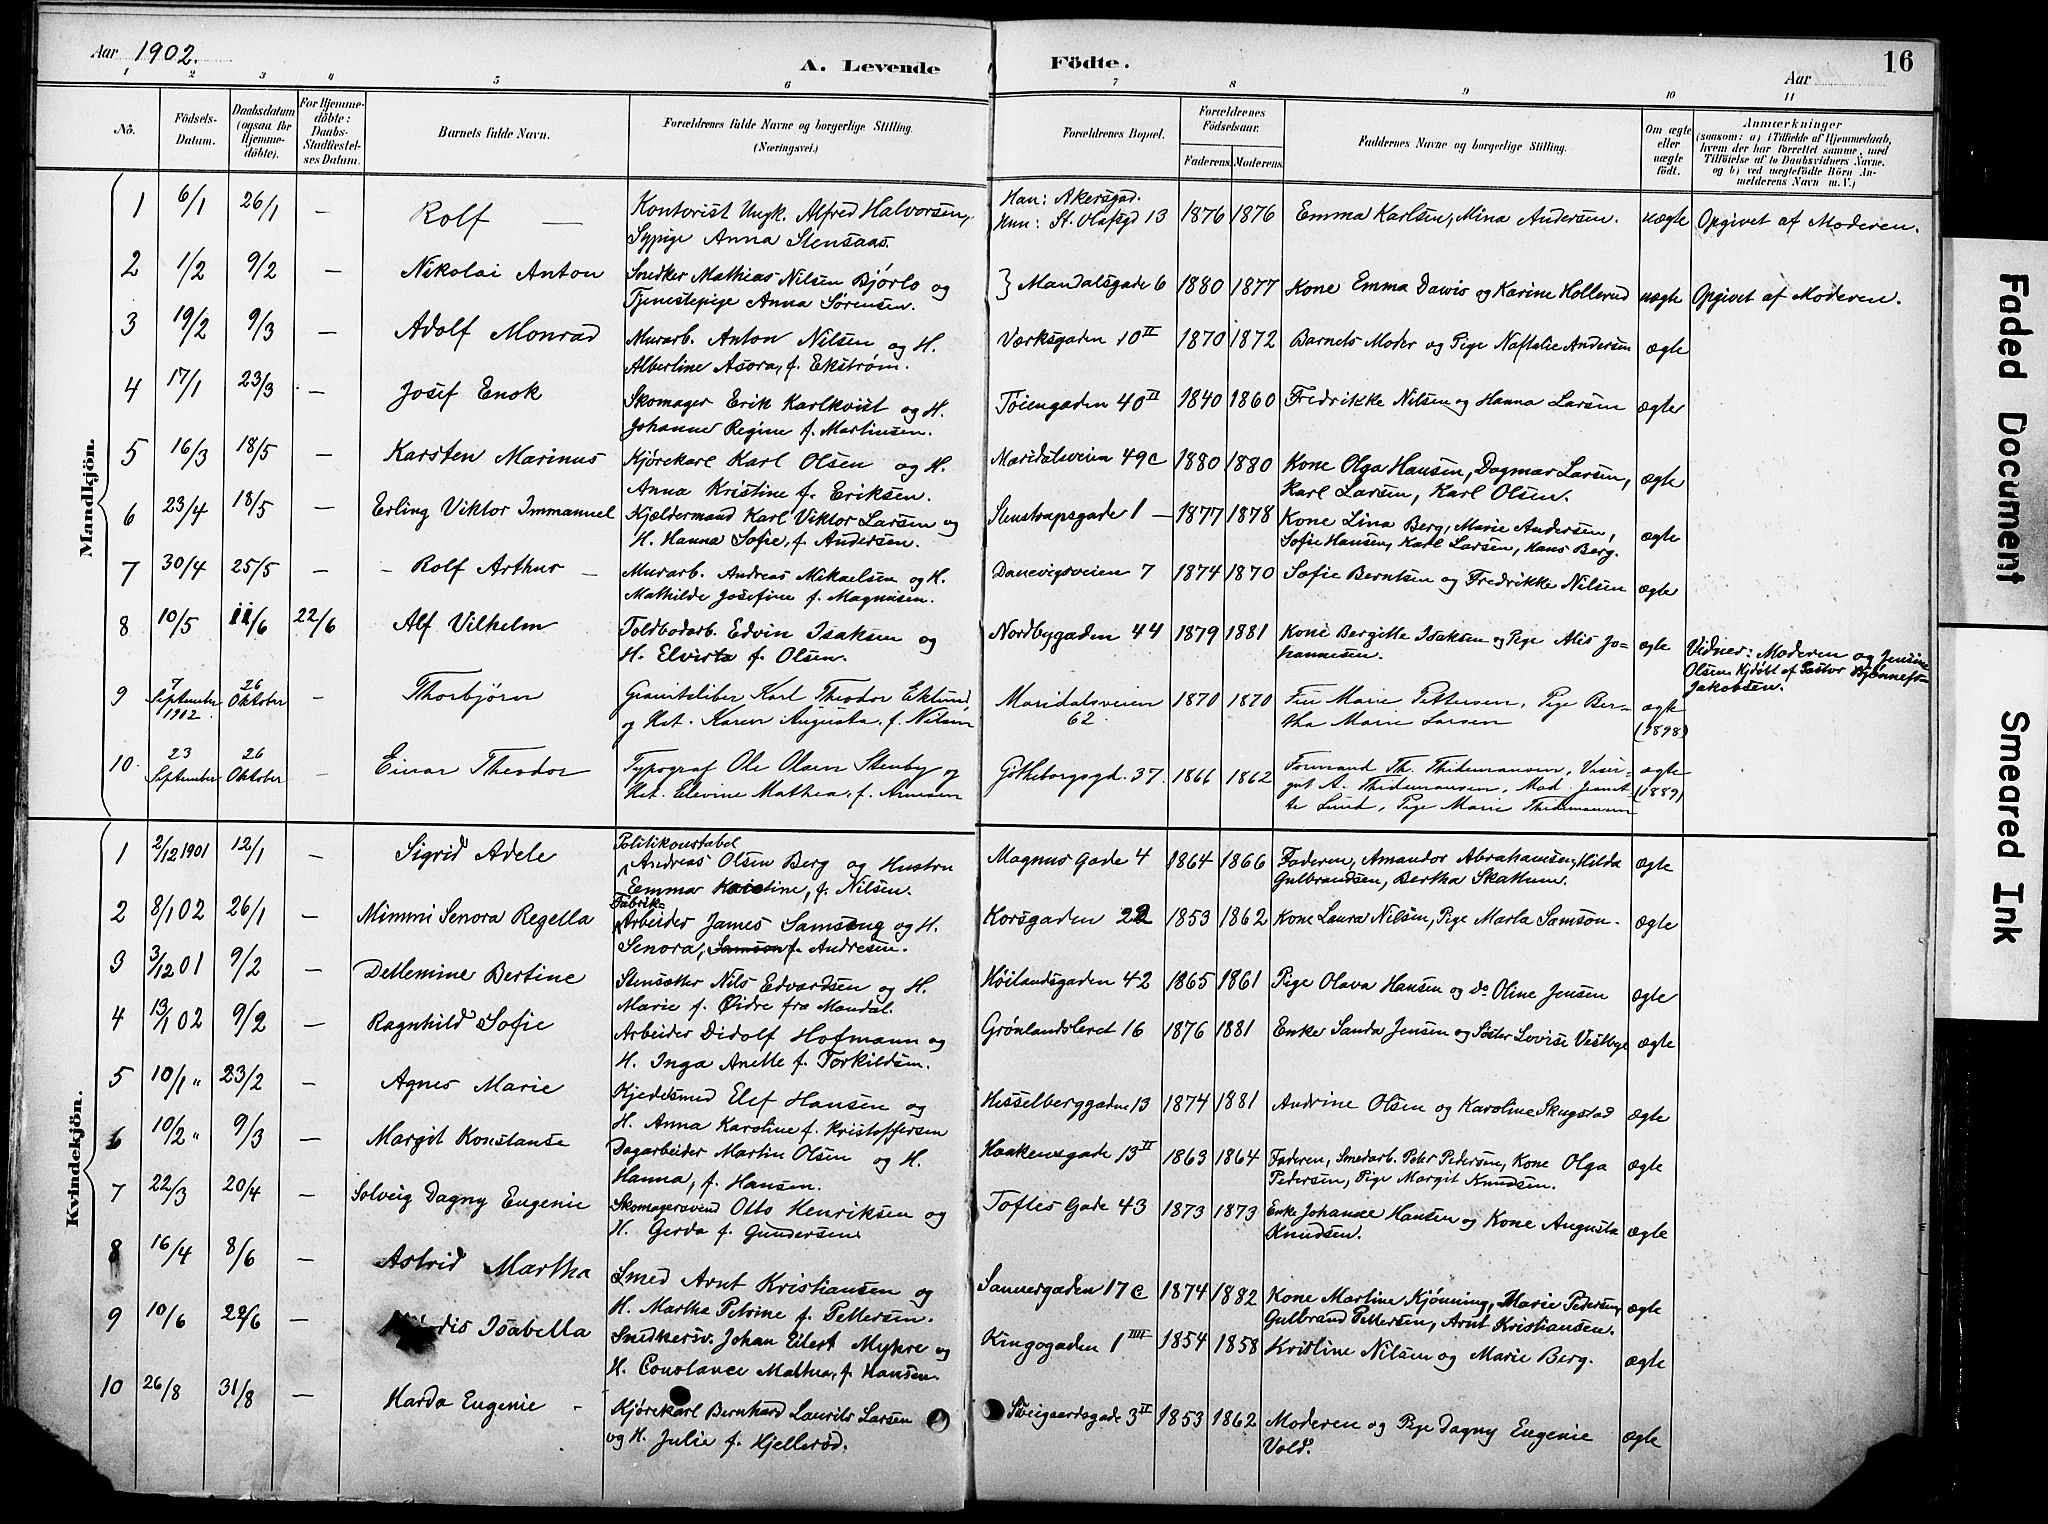 Aar 1902. A. Levende Födte. Aar 16
1 2 3 4 5 6 7 8 9 10 11
No. Födsels-Datum. Daabsdatum (ogsaa for Hjemmedöbte). For Hjemmedöbte: Daabs-Stadfæstelses Datum. Barnets fulde Navn. Forældrenes fulde Navne og borgerlige Stilling. (Næringsvei.) Forældrenes Bopæl. Forældrenes Födselsaar. Faderens. Moderens. Faddernes Navne og borgerlige Stilling. Om ægte eller uægte födt. Anmærkninger (saasom: a) i Tilfælde af Hjemmedaab, hvem der har forrettet samme, med Tilföielse af to Daabsvidners Navne. og b) ved uægtefödte Börn Anmelderens Navn m. V.)
Mandkjön.
1 6/1 26/1 — Rolf — Kontorist Ungk. Alfred Halvorsen, Han: Akersgad. 1876 1876 Emma Karlsen, Mina Andersen. uægte Opgivet af Moderen.
Sypige Anna Stensaas. Hun: St. Olafsgd 13
2 1/2 9/2 — Nikolai Anton Snedker Mathias Nilsen Bjørlo og } Mandalsgade 6 1880 1877 Kone Emma Dawis og Karine Hollerud uægte Opgivet af Moderen.
Tjenestepige Anna Sørensen.
3 19/2 9/3 — Adolf Monrad Murarb. Anton Nilsen og H. Værksgaden 10 II 1870 1872 Barnets Moder og Pige Naftalie Andersen ægte
Albertine Asora, f. Ekstrøm.
4 17/1 23/3 — Josef Enok Skomager Erik Karlkvist og H. Tøiengaden 40 II 1840 1860 Fredrikke Nilsen og Hanna Larsen ægte
Johanne Regine f. Martinsen.
5 16/3 18/5 — Karsten Marinus Kjørekarl Karl Olsen og H. Maridalsveien 49c 1880 1880 Kone Olga Hansen, Dagmar Larsen, ægte
Anna Kristine f. Eriksen. Karl Larsen, Karl Olsen.
6 23/4 18/5 — Erling Viktor Immanuel Kjældermand Karl Viktor Larsen og Stenstrupsgade 1 — 1877 1878 Kone Lina Berg, Marie Andersen, ægte
H. Hanna Sofie, f. Andersen. Sofie Hansen, Karl Larsen, Hans Berg.
7 30/4 25/5 — - Rolf Arthur — Murarb. Andreas Mikaelsen og H. Danevigsveien 7 1874 1870 Sofie Berntsen og Fredrikke Nilsen ægte
Mathilde Josefine f. Magnusen.
8 10/5 11/6 22/6 Alf Vilhelm Toldbodarb. Edvin Isaksen og Nordbygaden 44 1879 1881 Kone Bergitte Isaksen og Pige Alis Jo- ægte Vidner: Moderen og Jensine
H. Elvirta f. Olsen. hannesen. Olsen. Hjdøbt af Pastor
Jakobsen.
9 7 September 1902 26 Oktober — Thorbjørn Granitsliber Karl Theodor Eklund, Maridalsveien 1870 1870 Fru Marie Pettersen, Pige Ber- ægte
og Hst. Karen Augusta, f. Nilsen 62 tha Marie Larsen (1898)
10 23 September 26 Oktober — Einar Theodor Typograf Ole Olsen Stenby og Gøtheborgsgd. 37. 1866 1862 Formand Th. Thidemansen, Visergut ægte
Hst. Elevine Mathea, f. Arnesen A. Thidemansen, Mad. Jeanette (1889)
Lund, Pige Marie Thidemansen
Kvindekjön.
1 2/12 1901 12/1 — Sigrid Adele Politikonstabel
Andreas Olsen Berg og Hustru Magnus Gade 4 1864 1866 Faderen, Amandor Abrahamsen, Hilda ægte
Emma Kristine, f. Nilsen. Gulbrandsen, Bertha Skattum.
2 8/1 02 26/1 — Mimmi Senora Regella Fabrik-
Arbeider James Samsong og H. Korsgaden 22 1853 1862 Kone Laura Nilsen, Pige Marta Samson. ægte
Senora, Samson f. Andresen.
3 3/12 01 9/2 — Detlemine Bertine Stensætter Nils Edvardsen og H. Høilandsgaden 42 1865 1861 Pige Olava Hansen og do Oline Jensen ægte
Marie f. Øidre fra Mandal.
4 13/1 02 9/2 — Ragnhild Sofie Arbeider Didolf Hofmann og Grønlandsleret 16 1876 1881 Enke Sanda Jensen og Søster Lovise Vestbye ægte
H. Inga Anette f. Torkildsen.
5 10/1 " 23/2 — Agnes Marie Kjedelsmed Elef Hansen og Hesselberggaden 13 1874 1881 Andrine Olsen og Karoline Skugstad ægte
H. Anna Karoline f. Kristoffersen
6 10/2 " 9/3 — Margit Konstanse Dagarbeider Martin Olsen og H. Haakensgade 13 II 1863 1864 Faderen, Smedarb. Peter Pedersen, Kone Olga ægte
Hanna, f. Hansen. Pedersen, Pige Margit Knudsen.
7 22/3 20/4 — Solveig Dagny Eugenie Skomagersvend Otto Henriksen og Toftes Gade 43 1873 1873 Enke Johanne Hansen og Kone Augusta ægte
H. Gerda f. Gundersen. Knudsen.
8 16/4 8/6 — Astrid Martha Smed Arnt Kristiansen og Sannergaden 17 c 1874 1882 Kone Martine Kjønning, Marie Pedersen, ægte
H. Martha Petrine f. Pettersen. Gulbrand Pettersen, Arnt Kristiansen.
9 10/6 22/6 — Isabella Snedkersv. Johan Eilert Myhre og Kingogaden 1 IIII 1854 1858 Kristine Nilsen og Marie Berg. ægte
H. Constance Mathea, f. Hansen.
10 26/8 31/8 — Harda Eugenie - Kjørekarl Bernhard Laurits Larsen Sveigaardsgade 3 II 1853 1862 Moderen og Pige Dagny Eugenie ægte
og H. Julie f. Hjellerød. Vold.
Faded Document
Smeared Ink